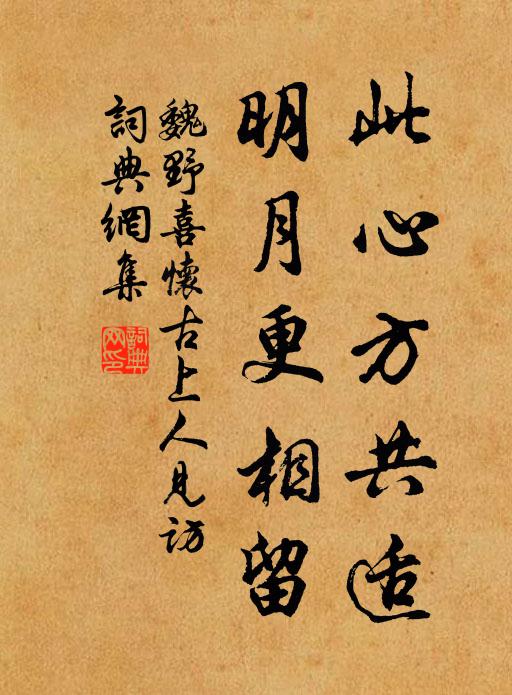 此心方共适
明月更相留
魏野喜懷古上人見访
詞典網集
詞典網印